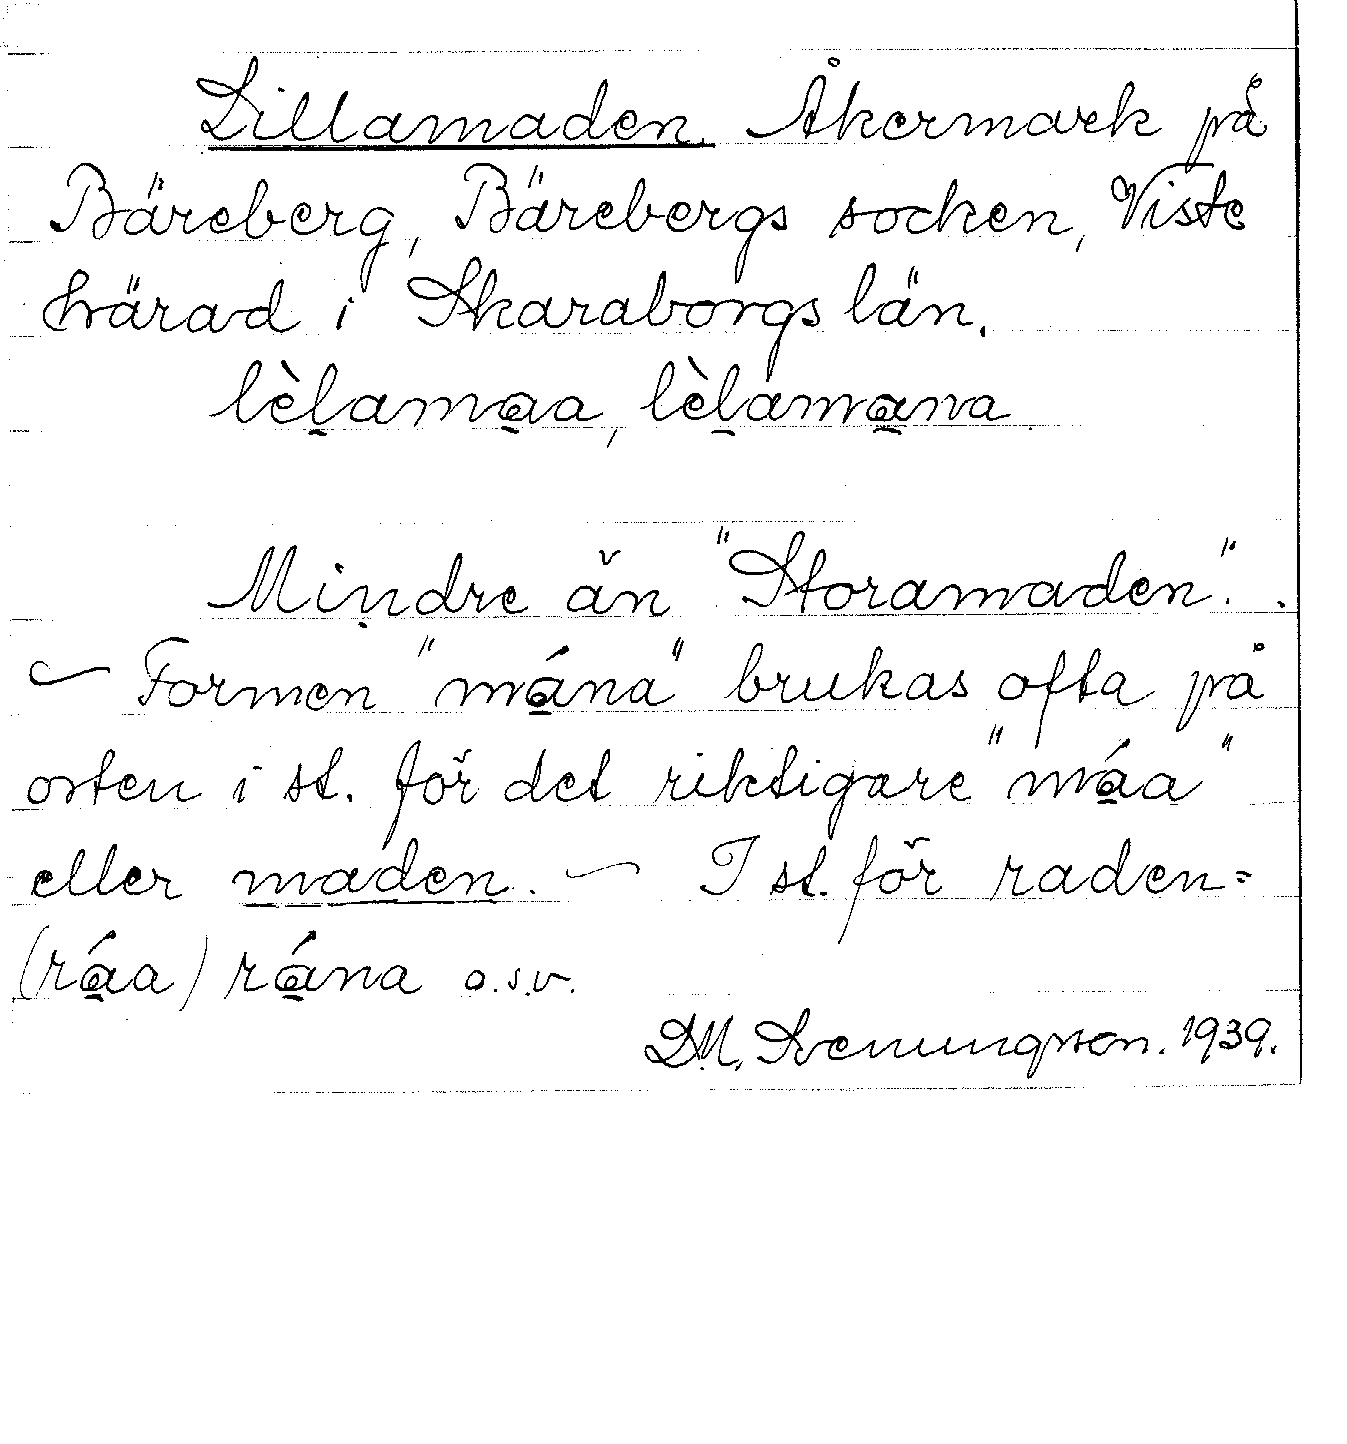 Lillamaden. Åkermark på
Bäreberg, Bärebergs socken, Viste
härad i Skaraborgs län.
lèl̠ama̠a, lèl̠ama̠na.
Mindre än "Storamaden".
— Formen "má̠na" brukas ofta på
orten i st. för det riktigare "má̠a"
eller maden. — I st. för raden=
(rá̠a) rá̠na o.s.v.
D.M. Svenungsson. 1939.